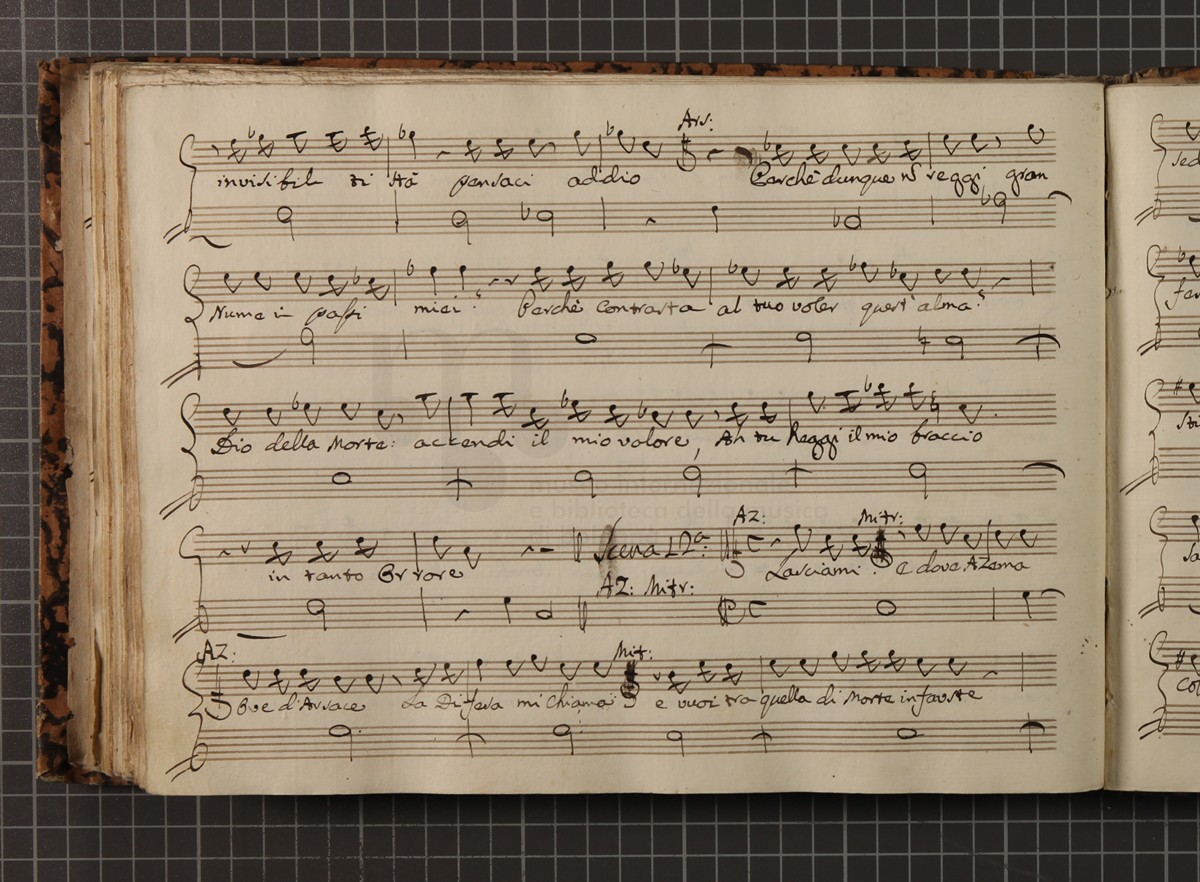 Ars:
invisibile ti stà pensaci addio Perchè dunque reggi gran
Nume i passi miei? Perchè contrasta al tuo voler quest'alma?
Dio della Morte: accendi il mio valore, Ah tu Reggi il mio braccio
Az: Mitr:
in tanto Errore Scena 12a: Lasciami. E dove Azema
AZ: Mitr:
Az: Mit:
Ove d'Arsace La Difesa mi chiama e vuoi tra quella di Morte infauste
museo internazionale
e biblioteca della musica